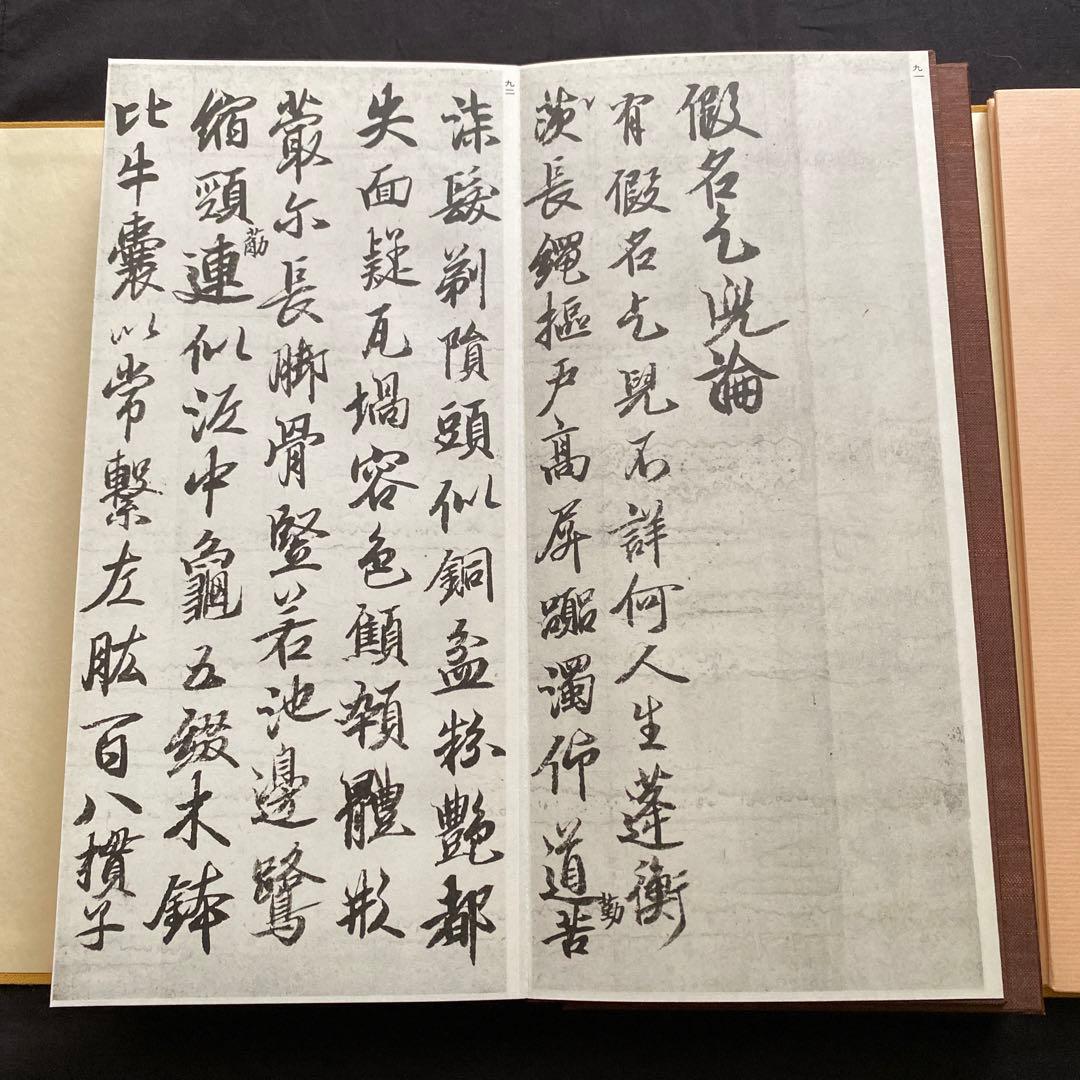 九一
假名乞兒論
有假名乞兒不詳何人生蓬衡
茨長繩樞戸高屏囂濁仰道苦
勤
九二
漆髮剃隕頭似銅盆粉艶都
失面疑瓦堝容色顦顇體形
蕞尓長脚骨竪若池邊鷺
縮頸連似泥中龜五綴木鉢
筋
比牛囊以常繫左肱百八槵子